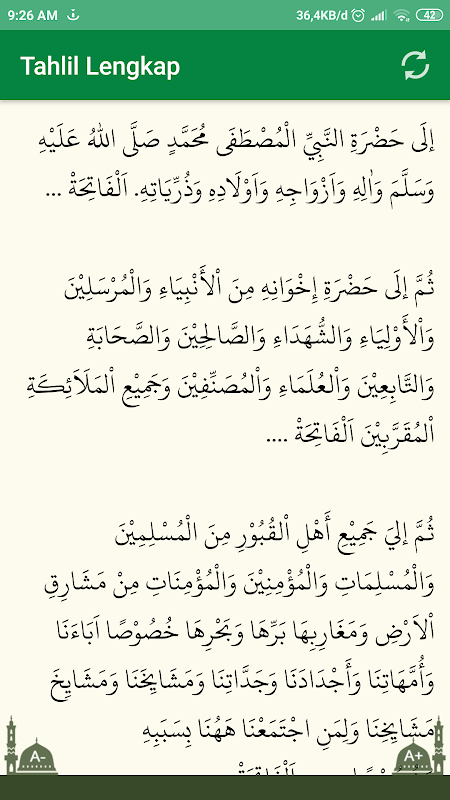 9:26 AM 36,4KB/d 42
Tahlil Lengkap
إلَى حَضْرَةِ النَّبِيِّ الْمُصْطَفَى مُحَمَّدٍ صَلَّى اللهُ عَلَيْهِ
وَسَلَّمَ وَاٰلِهِ وَاَزْوَاجِهِ وَاَوْلَادِهِ وَذُرِّيَاتِهِ. اَلْفَاتِحَةْ ...
ثُمَّ إلَى حَضْرَةِ إِخْوَانِهِ مِنَ اْلأَنْبِيَاءِ وَالْمُرْسَلِيْنَ
وَاْلأَوْلِيَاءِ وَالشُّهَدَاءِ وَالصَّالِحِيْنَ وَالصَّحَابَةِ
وَالتَّابِعِيْنَ وَاْلعُلَمَاءِ وَاْلمُصَنِّفِيْنَ وَجَمِيْعِ اْلمَلَائِكَةِ
اْلمُقَرَّبِيْنَ اَلْفَاتِحَةْ ....
ثُمَّ إليَ جَمِيْعِ أَهْلِ اْلقُبُوْرِ مِنَ الْمُسْلِمِيْنَ
وَالْمُسْلِمَاتِ وَالْمُؤْمِنِيْنَ وَالْمُؤْمِنَاتِ مِنْ مَشَارِقِ
اْلاَرْضِ وَمَغَارِبِهَا بَرِّهَا وَبَحْرِهَا خُصُوْصًا اَبَاءَنَا
وَأُمَّهَاتِنَا وَأَجْدَادَنَا وَجَدَّاتِنَا وَمَشَايِخَنَا وَمَشَايِخَ
مَشَايِخِنَا وَلِمَنِ اجْتَمَعْنَا هَهُنَا بِسَبَبِهِ
A- A+